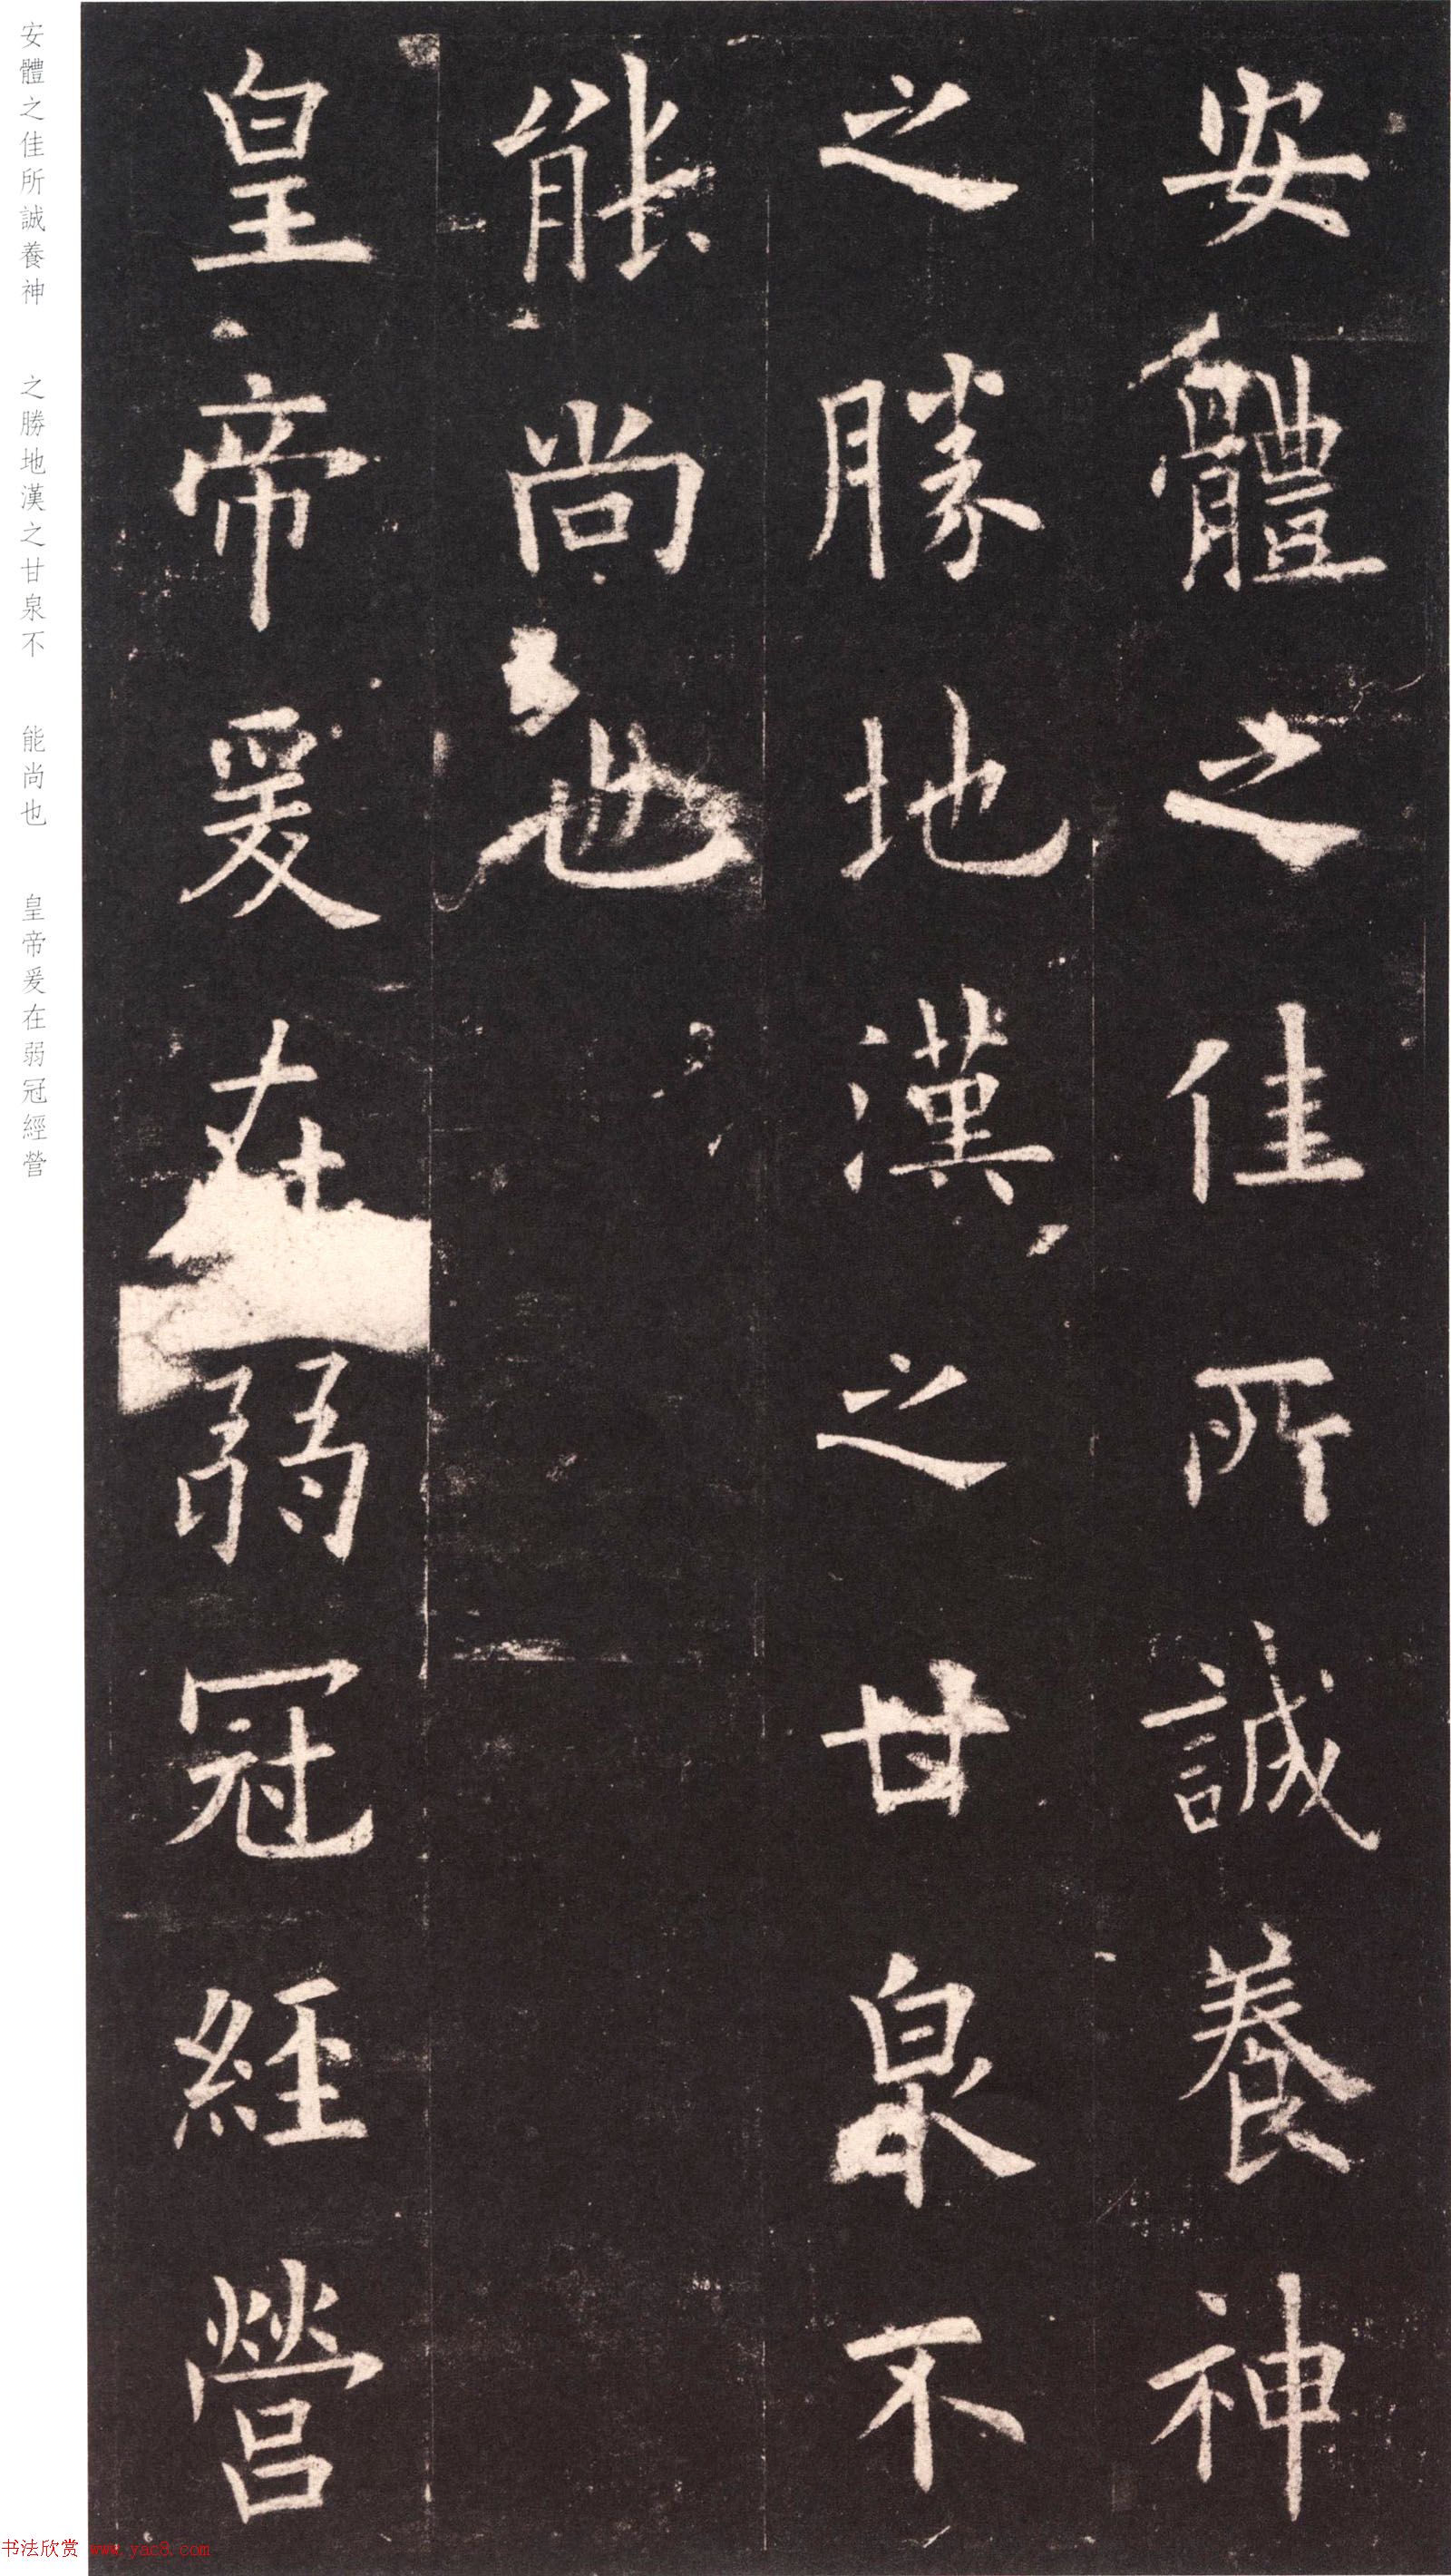 安體之佳所誠養神
之勝地漢之甘泉不
能尚也
皇帝爰在弱冠經營
安體之佳所誠養神 之勝地漢之甘泉不 能尚也 皇帝爰在弱冠經營
书法欣赏 www.yac8.com